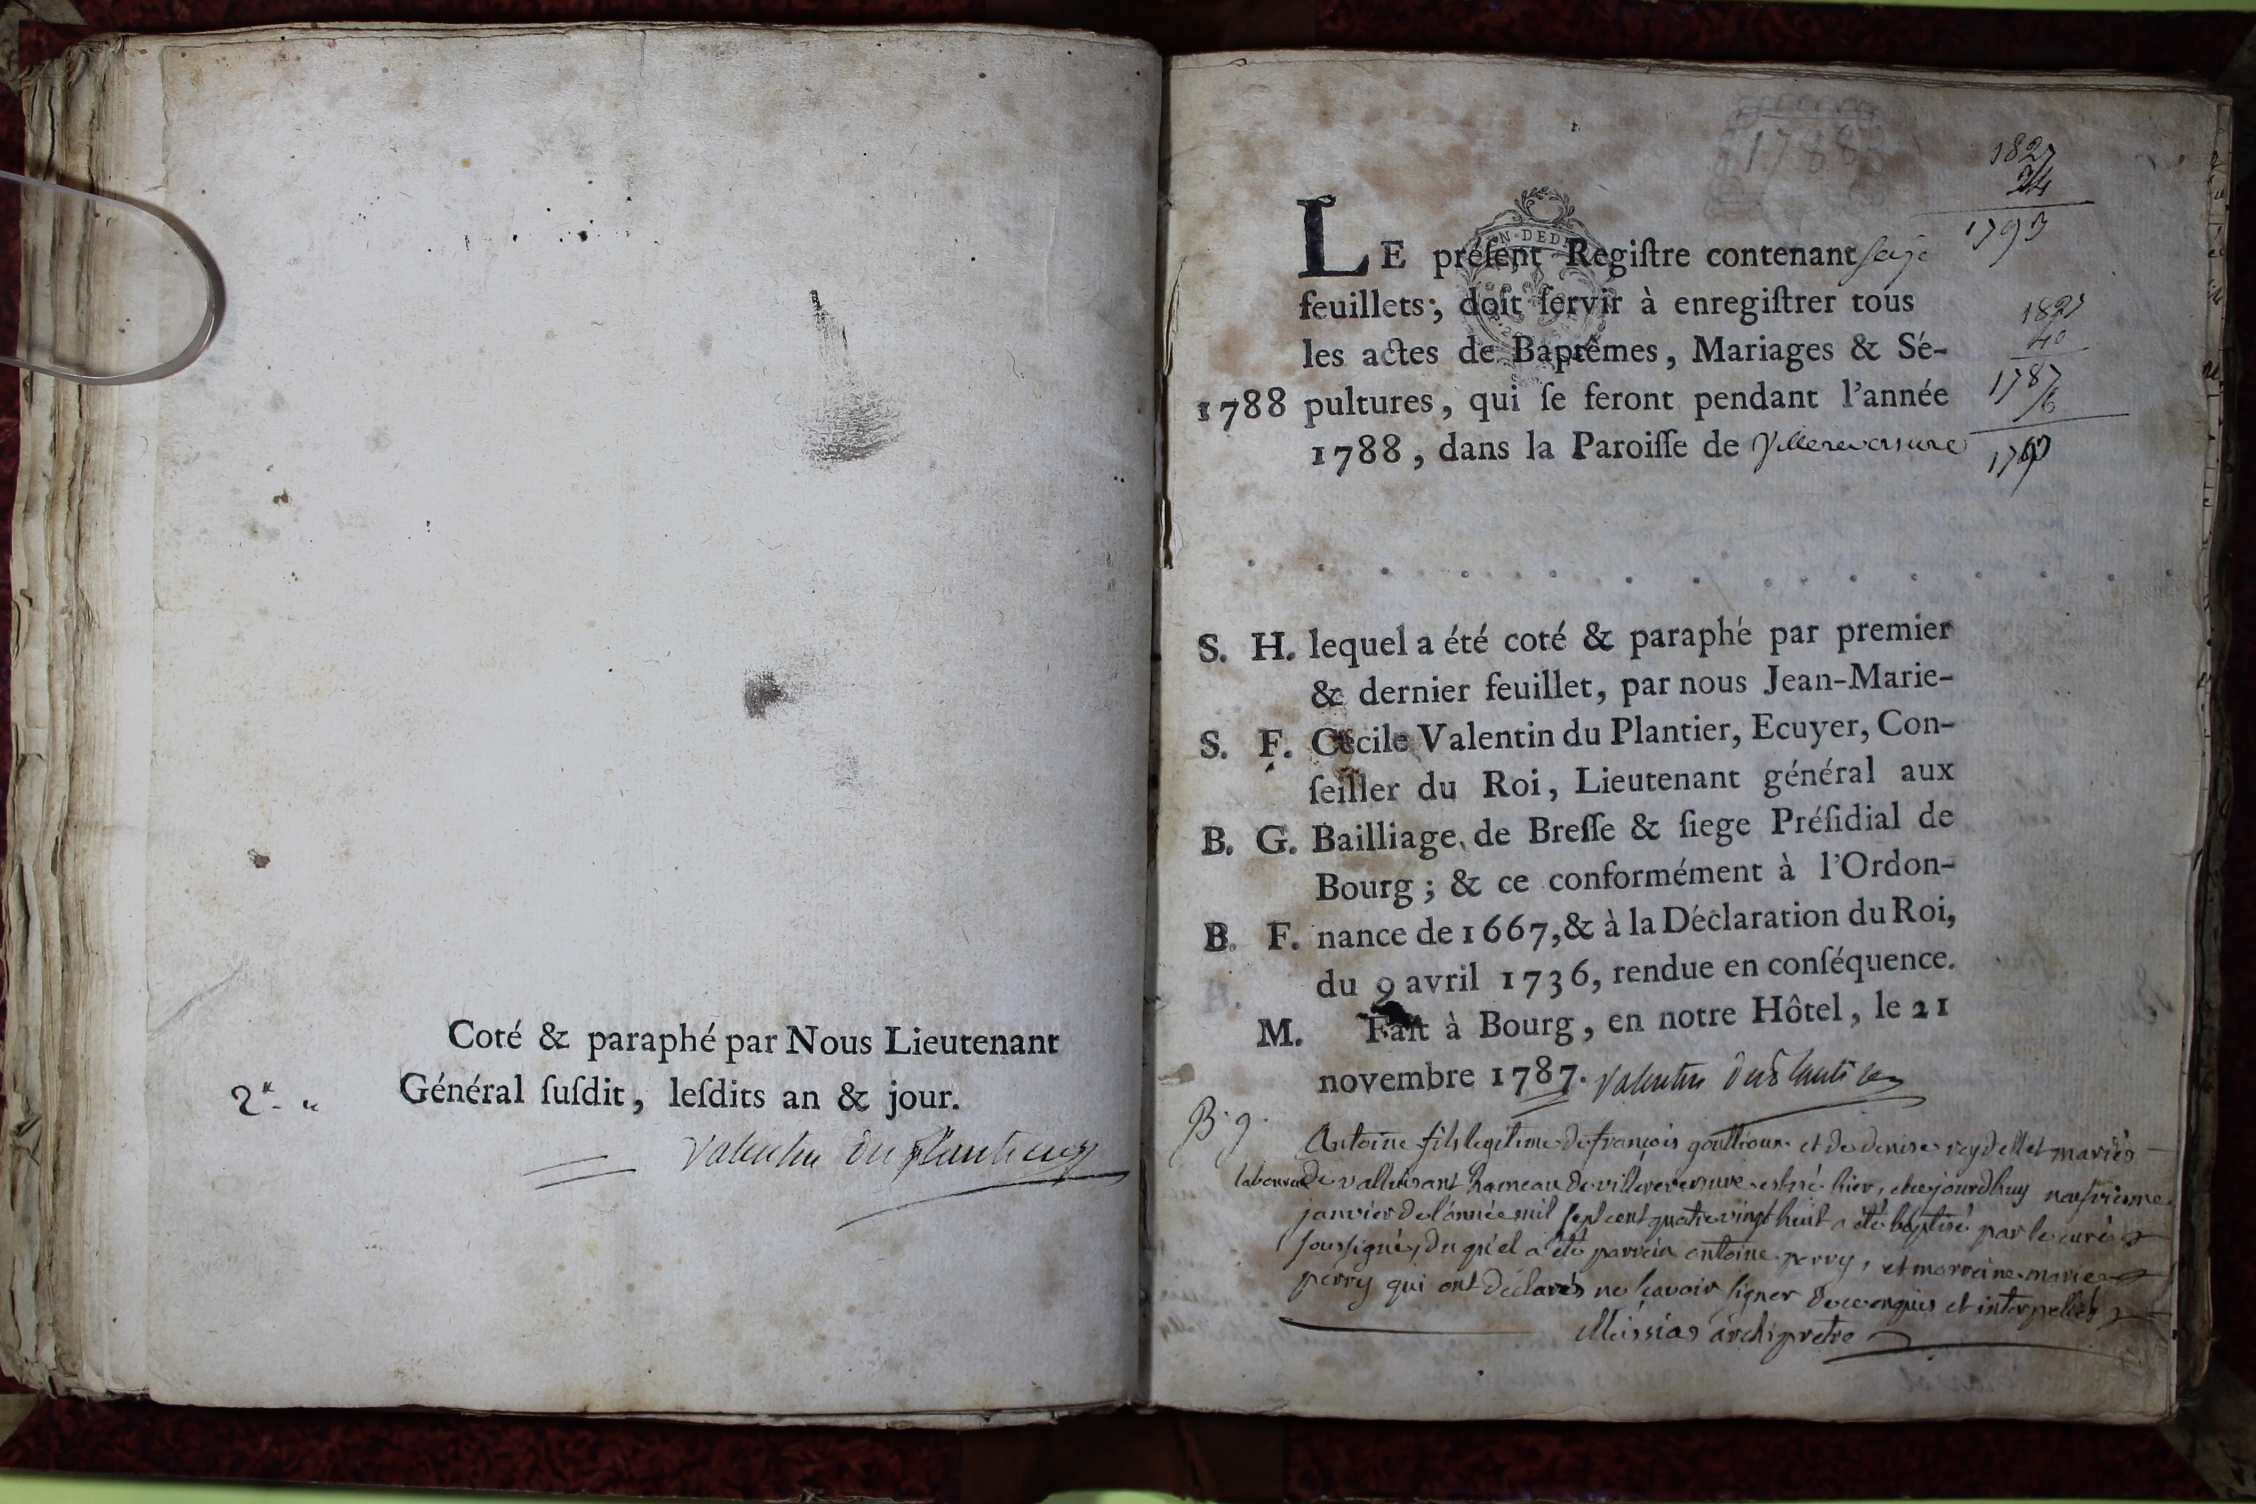 Coté & paraphé par Nous Lieutenant
Général ſuſdit, leſdits an & jour.
Valentin du plantier
1788
1827
34
1793
LE préſent Regiſtre contenant seize
feuillets; doit ſervir à enregiſtrer tous
les actes de Baptêmes, Mariages & Sé-
1788 pultures, qui ſe feront pendant l'année
1788, dans la Paroiſſe de Villereversure
1827
40
1787
S. H. lequel a été coté & paraphé par premier
& dernier feuillet, par nous Jean-Marie-
S. F. Cécile Valentin du Plantier, Ecuyer, Con-
ſeiller du Roi, Lieutenant général aux
B. G. Bailliage de Breſſe & ſiege Préſidial de
Bourg; & ce conformément à l'Ordon-
B. F. nance de 1667, & à la Déclaration du Roi,
du 9 avril 1736, rendue en conſéquence.
M. Fait à Bourg, en notre Hôtel, le 21
novembre 1787. Valentin du Plantier
B. g. Antoine fils legitime de françois gouttioux et de denise reydellet mariés
laboureur de valluisant hameau de villereversure est né hier, et cejourdhuy neufvieme
janvier de l'année mil sept cent quatre vingt huit a été baptisé par le curé
soussigné, du qu'el a été parrein antoine perry, et marreine marie
perry qui ont déclarés ne sçavoir signer de ce enquis et interpellés
Messias archipretre